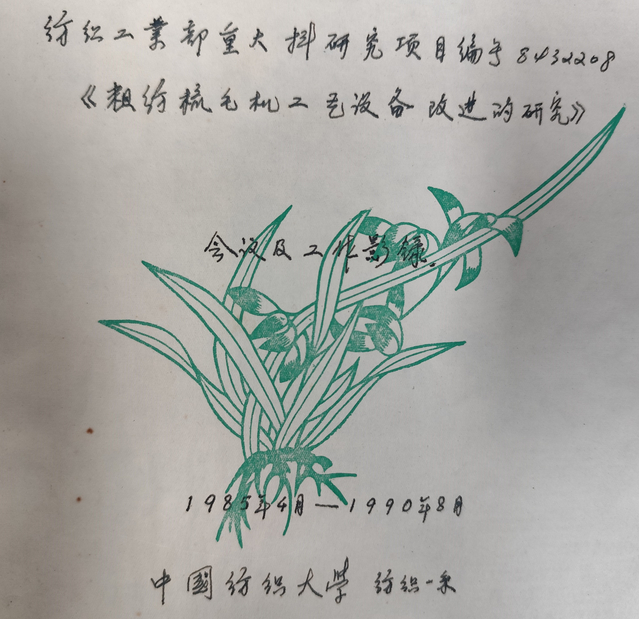 纺织工業部重大科研究项目编号8432208
《粗纺梳毛机工艺设备改进的研究》
会议及工作影錄。
1985年4月—1990年8月
中國纺织大學 纺织一系